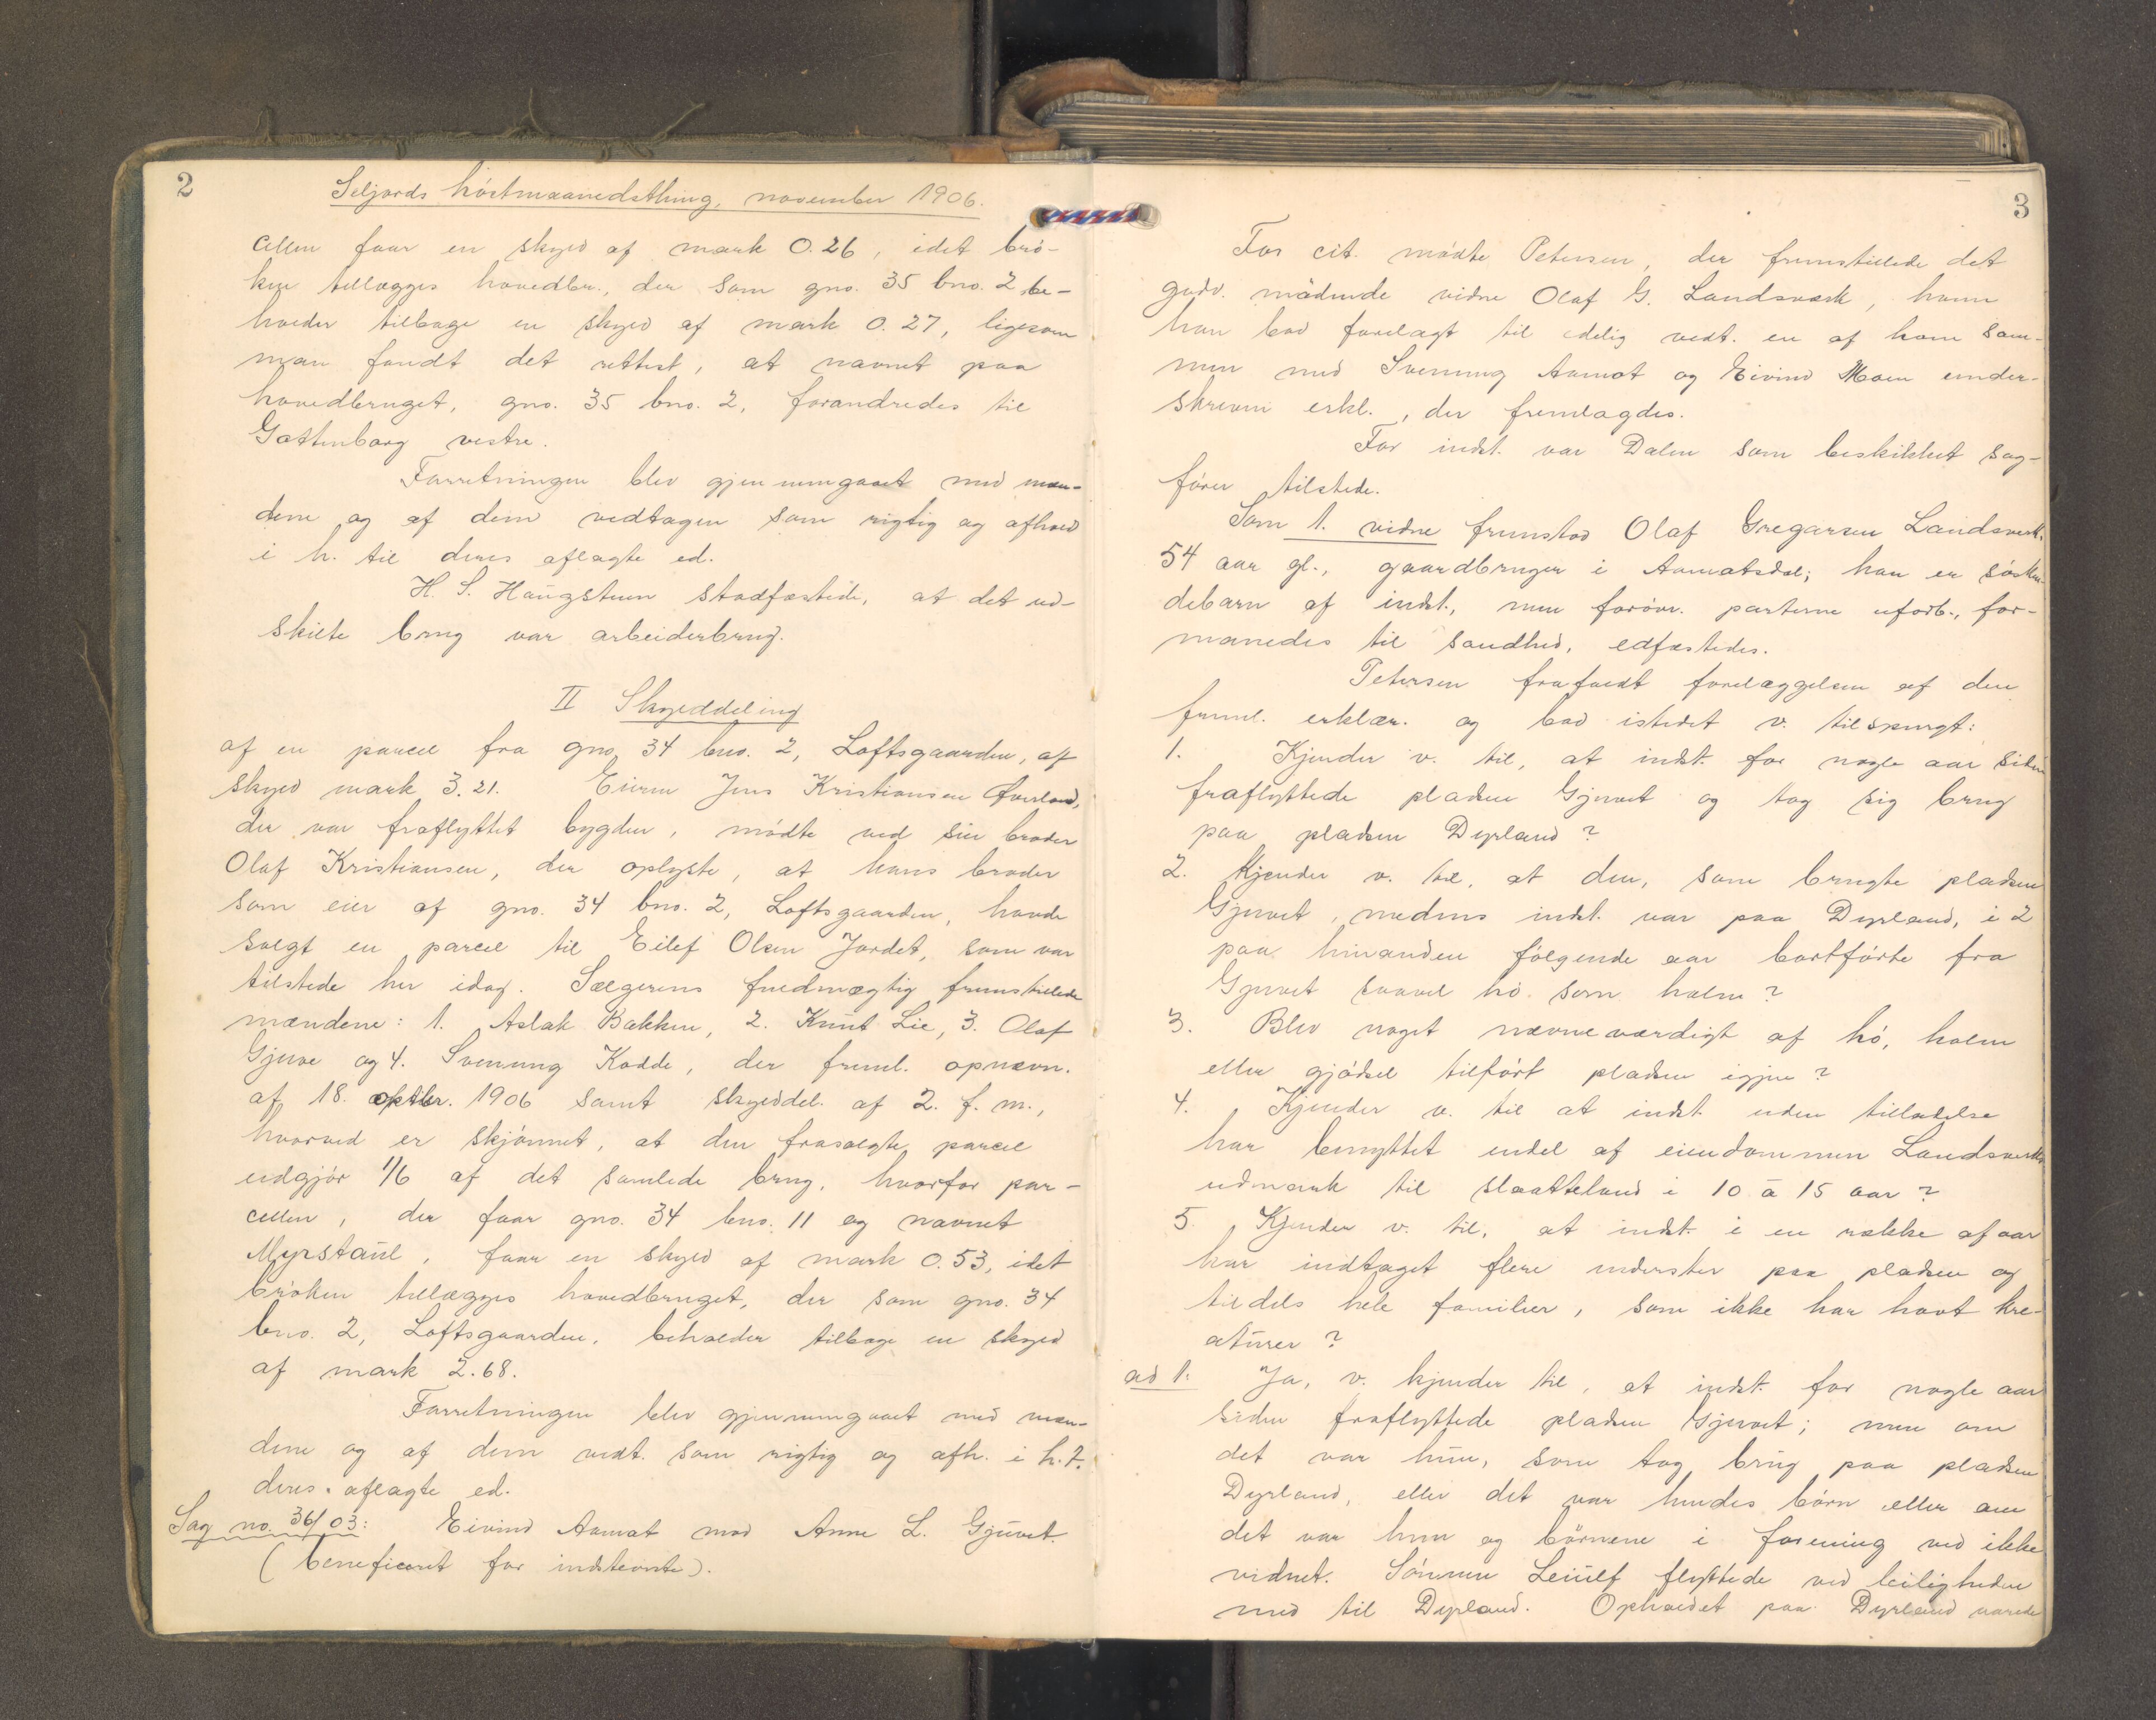 2
Seljords höstmaanedsthing, november 1906.
cellen faar en skyld af mark 0.26, idet brö-
ken tillægges hovedbr., der som gno. 35 bno. 2 be-
holder tilbage en skyld af mark 0.27, ligesom
man fandt det rettest, at navnet paa
hovedbruget, gno. 35 bno. 2, forandredes til
Gøttenborg vestre.
Forretningen blev gjennemgaaet med mæn-
dene og af dem vedtagen som rigtig og afhold
i h. til deres aflagte ed.
H. S. Haugstuen stadfæstede, at det ud-
skilte brug var arbeiderbrug.
II Skylddeling
af en parcel fra gno. 34 bno. 2, Loftsgaarden, af
skyld mark 3.21. Eieren Jens Kristiansen Øverland,
der var fraflyttet bygden, mödte ved sin broder
Olaf Kristiansen, der oplyste, at hans broder
som eier af gno. 34 bno. 2, Loftsgaarden, havde
solgt en parcel til Eilef Olsen Jordet, som var
tilstede her idag. Sælgerens fuldmægtig fremstillede
mændene: 1. Aslak Bakken, 2. Knut Lie, 3. Olaf
Gjuve og 4. Svenung Kodde, der freml. opnævn.
af 18. oktbr. 1906 samt skylddel. af 2. f. m.,
hvorved er skjönnet, at den frasolgte parcel
udgjör 1/6 af det samlede brug, hvorfor par-
cellen, der faar gno. 34 bno. 11 og navnet
Myrstaul, faar en skyld af mark 0.53, idet
bröken tillægges hovedbruget, der som gno. 34
bno. 2, Loftsgaarden, beholder tilbage en skyld
af mark 2.68.
Forretningen blev gjennemgaaet med mæn-
dene og af dem vedt. som rigtig og afh. i h. t.
deres aflagte ed.
Sag no. 36/03: Eivind Aamot mod Anne L. Gjuvet.
(beneficeret for indstevnte).
3
For cit. mödte Petersen, der fremstillede det
godv. mödende vidne Olaf G. Landsverk, hvem
han bad forelagt til edelig vedt. en af ham sam-
men med Svenung Aamot og Eivind Moen under-
skreven erkl., der fremlagdes.
For indst. var Dalen som beskikket sag-
förer tilstede.
Som 1. vidne fremstod Olaf Gregarsen Landsverk,
54 aar gl., gaardbruger i Aamotsdal; han er sösken-
debarn af indst., men foröv. parterne uforb., for-
manedes til sandhed, edfæstedes.
Petersen frafaldt forelæggelsen af den
freml. erklær. og bad istedet v. tilspurgt:
1. Kjender v. til, at indst. for nogle aar siden
fraflyttede pladsen Gjuvet og tog sig brug
paa pladsen Dyrland?
2. Kjender v. til, at den, som brugte pladsen
Gjuvet, medens indst. var paa Dyrland, i 2
paa hinanden fölgende aar bortförte fra
Gjuvet saavel hö som halm?
3. Blev noget nævneværdigt af hö, halm
eller gjödsel tilfört pladsen igjen?
4. Kjender v. til at indst. uden tilladelse
har benyttet endel af eiendommen Landsverks
udmark til slaatteland i 10 à 15 aar?
5. Kjender v. til, at indst. i en række af aar
har indtaget flere inderster paa pladsen og
tildels hele familier, som ikke har havt kre-
aturer?
ad 1. Ja, v. kjender til, at indst. for nogle aar
siden fraflyttede pladsen Gjuvet; men om
det var hun, som tog brug paa pladsen
Dyrland, eller det var hendes börn eller om
det var hun og börnene i forening ved ikke
vidnet. Sönnen Leiulf flyttede ved leiligheden
med til Dyrland. Opholdet paa Dyrland varede